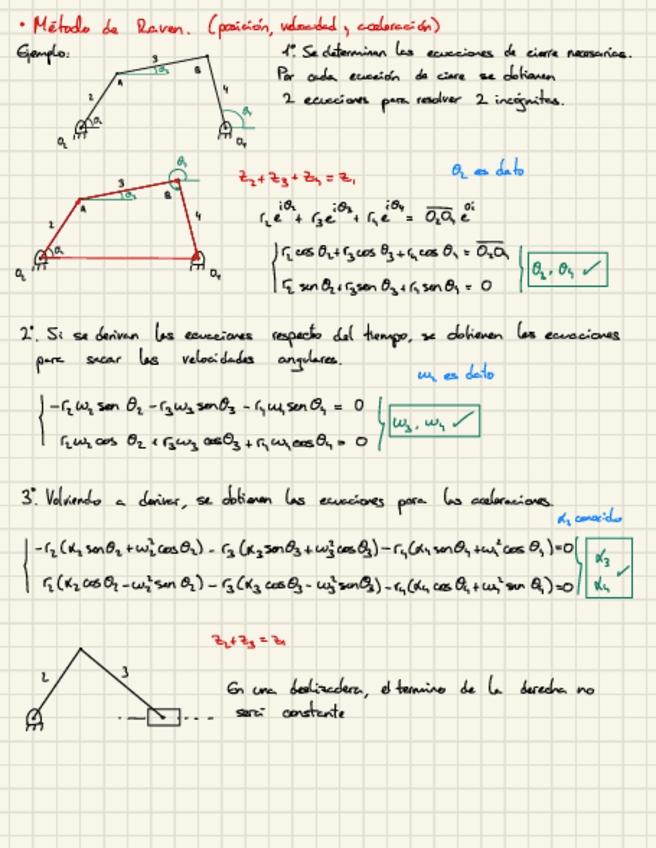 • Método de Raven. (posición, velocidad y aceleración)
Ejemplo:
1º. Se determinan las ecuaciones de cierre necesarias.
Por cada ecuación de cierre se obtienen
2 ecuaciones para resolver 2 incógnitas.
2 A 3 θ₃ B 4 θ₄
O₂ θ₂ O₄
z₂ + z₃ + z₄ = z₁
θ₂ es dato
2 A 3 θ₃ B θ₄ 4
O₂ θ₂ O₄
r₂e^{iθ₂} + r₃e^{iθ₃} + r₄e^{iθ₄} = O₂O₄ e^{0i}
r₂ cos θ₂ + r₃ cos θ₃ + r₄ cos θ₄ = O₂O₄
θ₃, θ₄ ✓
r₂ sen θ₂ + r₃ sen θ₃ + r₄ sen θ₄ = 0
2º. Si se derivan las ecuaciones respecto del tiempo, se obtienen las ecuaciones
para sacar las velocidades angulares.
ω₂ es dato
-r₂ω₂ sen θ₂ - r₃ω₃ sen θ₃ - r₄ω₄ sen θ₄ = 0
ω₃, ω₄ ✓
r₂ω₂ cos θ₂ + r₃ω₃ cos θ₃ + r₄ω₄ cos θ₄ = 0
3º. Volviendo a derivar, se obtienen las ecuaciones para las aceleraciones.
α₂ conocido
-r₂(α₂ sen θ₂ + ω₂² cos θ₂) - r₃(α₃ sen θ₃ + ω₃² cos θ₃) - r₄(α₄ sen θ₄ + ω₄² cos θ₄) = 0
α₃
r₂(α₂ cos θ₂ - ω₂² sen θ₂) - r₃(α₃ cos θ₃ - ω₃² sen θ₃) - r₄(α₄ cos θ₄ + ω₄² sen θ₄) = 0
α₄ ✓
z₂ + z₃ = z₁
2 3
En una deslizadera, el termino de la derecha no
será constante